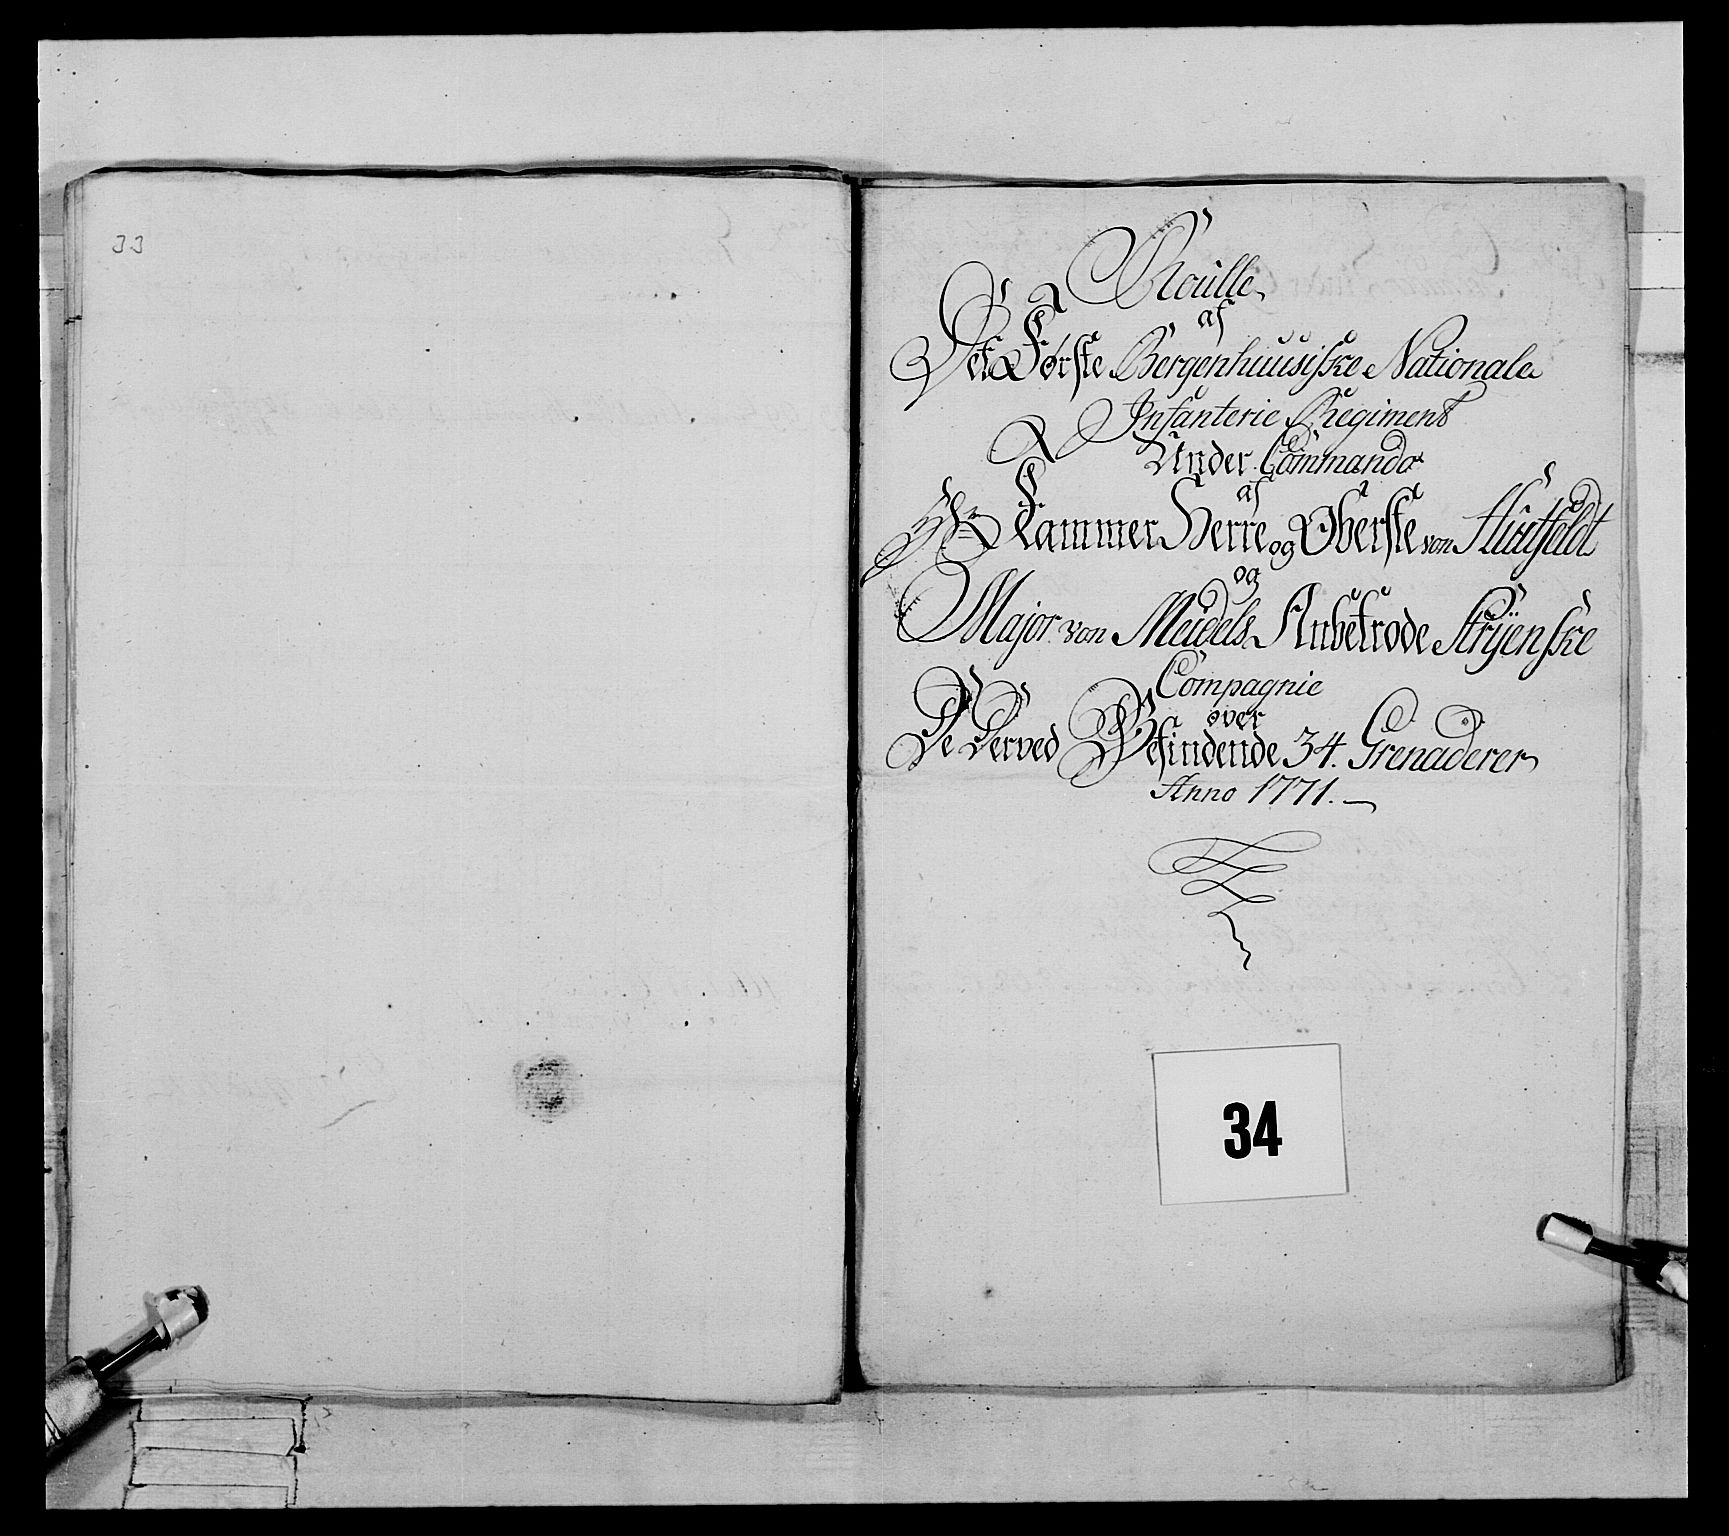 33
Roulle
af
Det Første Bergenhuusiske Nationale
Infanterie Regiment
Under Commando
af
Hr Kammer Herre og Oberste von Huitfeldt
og
Major von Meidels Anbetrode Strÿenske
Compagnie
over
De Derved Befindende 34. Grenaderer
Anno 1771.
34